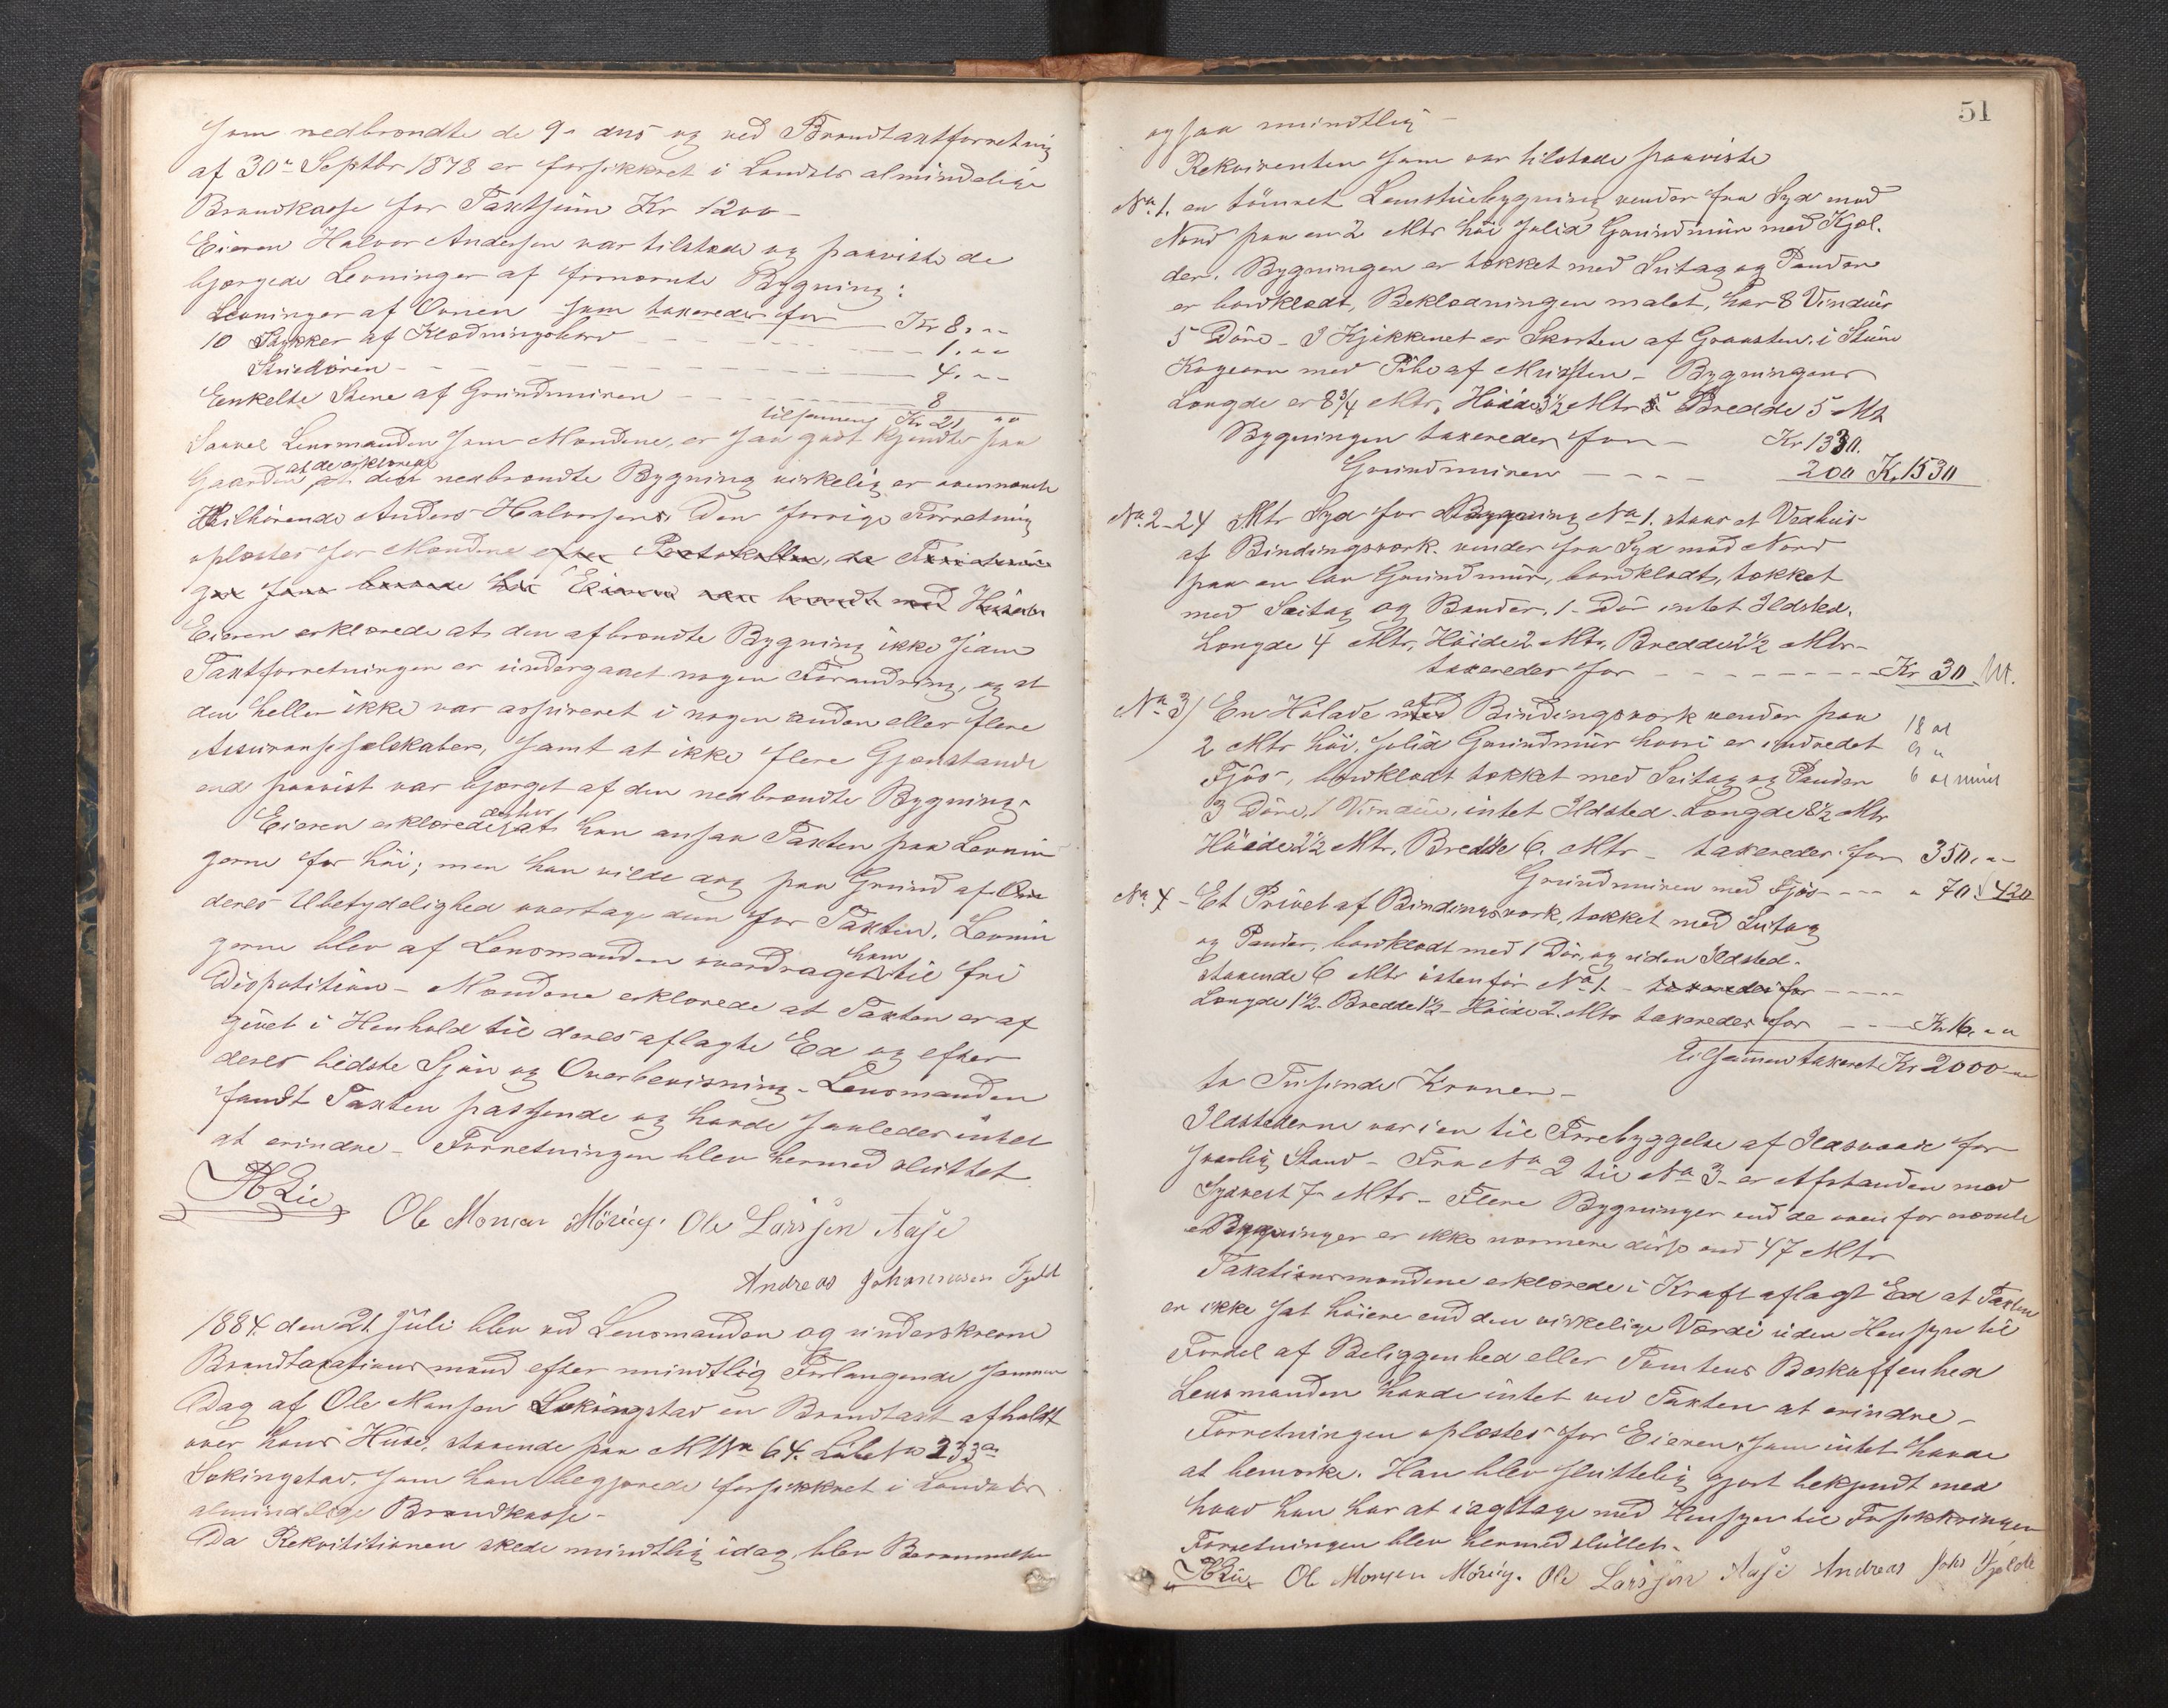 som nedbrændte de 9de ds og ved Brandtaxtforretning
af 30te Septbr 1878 er forsikkret i Landets almindelige
Brandkasse for Taxtsum Kr 1200 –
Eieren Halvor Andersen var tilstæde og paaviste de
bjærgede Levninger af fornævnte Bygning:
Levninger af Ovnen som taxeredes for – Kr 8. „ „
10 Stykker af Klædningsbord – – – 1. „ „
Stuedøren – – – 4. „ „
Eenkelte Stene af Grundmuren – – – 8
tilsammen Kr 21 „ „
Saavel Lensmanden som Mændene, er saa godt kjendte paa
Gaarden at de erklærede den nedbrændte Bygning virkelig er ovennævnte
tilhørende Anders Halvorsen. Den forrige Forretning
oplæstes for Mændene efter Protokollen, de
Eieren erklærede at den afbrændte Bygning ikke siden
Taxtforretningen er undergaaet nogen Forandring, og at
den heller ikke var assureret i nogen anden eller flere
Assuranseselskaber, samt at ikke flere Gjenstande
end paavist var bjerget af den nedbrændte Bygning –
Eieren erklærede derhos at han ansaa Taxten paa Levnin
gerne for høi; men han vilde dog paa Grund af
deres Ubetydelighed overtage dem for Taxten. Levnin
gerne blev af Lensmanden overdraget ham til fri
Disposition – Mændene erklærede at Taxten er af
givet i Henhold til deres aflagte Ed og efter
deres bedste Skjøn og Overbevisning – Lensmanden
fandt Taxten passende og havde saaledes intet
at erindre – Forretningen blev hermed sluttet
Ole Monsen Møring. Ole Larssen Aase
Andreas Johannesen Fjeld
1884 den 21 Juli blev ved Lensmanden og underskrevne
Brandtaxationsmænd efter mundtlig Forlangende samme
Dag af Ole Monsen Søkingstad en Brandtaxt afholdt
over hans Huse, staaende paa MtNr 64. LøbeNo 233a
Søkingstad, som han begjærede forsikkret i Landets
almindelige Brandkasse –
Da Rekvisitionen skede mundtlig idag, blev Berammelsen
51
ogsaa mundtlig –
Rekvirenten som var tilstæde paaviste
No. 1. en tømret Lemstuebygning vender fra Syd mod
Nord paa en 2 Mtr høi solid Grundmur med Kjæl.
der. Bygningen er tækket med Sutag og Pander
er bordklædt, Beklædningen malet, har 8 Vinduer
5 Døre – I Kjøkkenet er Skorsten af Graasten, i Stuen
Kogeovn med Pibe af Mursten – Bygningens
Længde er 8 3/4 Mtr, Høide 3 1/2 Mtr Bredde 5 Mtr
Bygningen taxeredes for – Kr 1330.
Grundmuren – – – 200 Kr 1530
No. 2 – 24 Mtr Syd for Bygning No 1. staar et Vedhus
af Bindingsværk. vender fra Syd mod Nord
paa en lav Grundmur, bordklædt, tækket
med Sutag og Pander. 1 Dør intet Ildsted.
Længde 4 Mtr, Høide 2 Mtr, Bredde 2 1/2 Mtr –
taxeredes for – – – Kr 30
No 3) En Hølade af Bindingsværk vender paa
2 Mtr høi, solid Grundmur hvori er indredet
Fjøs, bordklædt tækket med Sutag og Pander
3 Døre, 1 Vindue, intet Ildsted. Længde 8 1/2 Mtr
18 al
9 „
6 al
Høide 2 1/2 Mtr, Bredde 6. Mtr – taxeredes for 350. „ „
Grundmuren med Fjøs – – – „ 70. 420
No. 4 – Et Privet af Bindingsværk, tækket med Sutag
og Pander, bordklædt med 1 Dør, og uden Ildsted.
staaende 6 Mtr østenfor No 1. – taxeredes for – – –
Længde 1 1/2. Bredde 1 1/2 – Høide 2. Mtr taxeredes for – – – Kr 16. „ „
Tilsammen taxeret Kr 2000 „ „
to Tusinde Kroner –
Ildstederne var i en til Forebyggelse af Ildsvaade for
svarlig Stand – Fra No 2 til No 3 – er Afstanden mod
Sydvest 7 Mtr – Flere Bygninger end de ovenfor nævnte
Bygninger er ikke nærmere disse end 47 Mtr
Taxationsmændene erklærede i Kraft aflagt Ed at Taxten
er ikke sat høiere end den virkelige Værdi uden Hensyn til
Fordel af Beliggenhed eller Tomtens Beskaffenhed
Lensmanden havde intet ved Taxten at erindre –
Forretningen oplæstes for Eieren, som intet havde
at bemærke. Han blev sluttelig gjort bekjendt med
hvad han har at iagttage med Hensyn til Forsikkringen
Forretningen blev hermed sluttet.
Ole Monsen Møring. Ole Larssen Aase Andreas Johs Fjelde